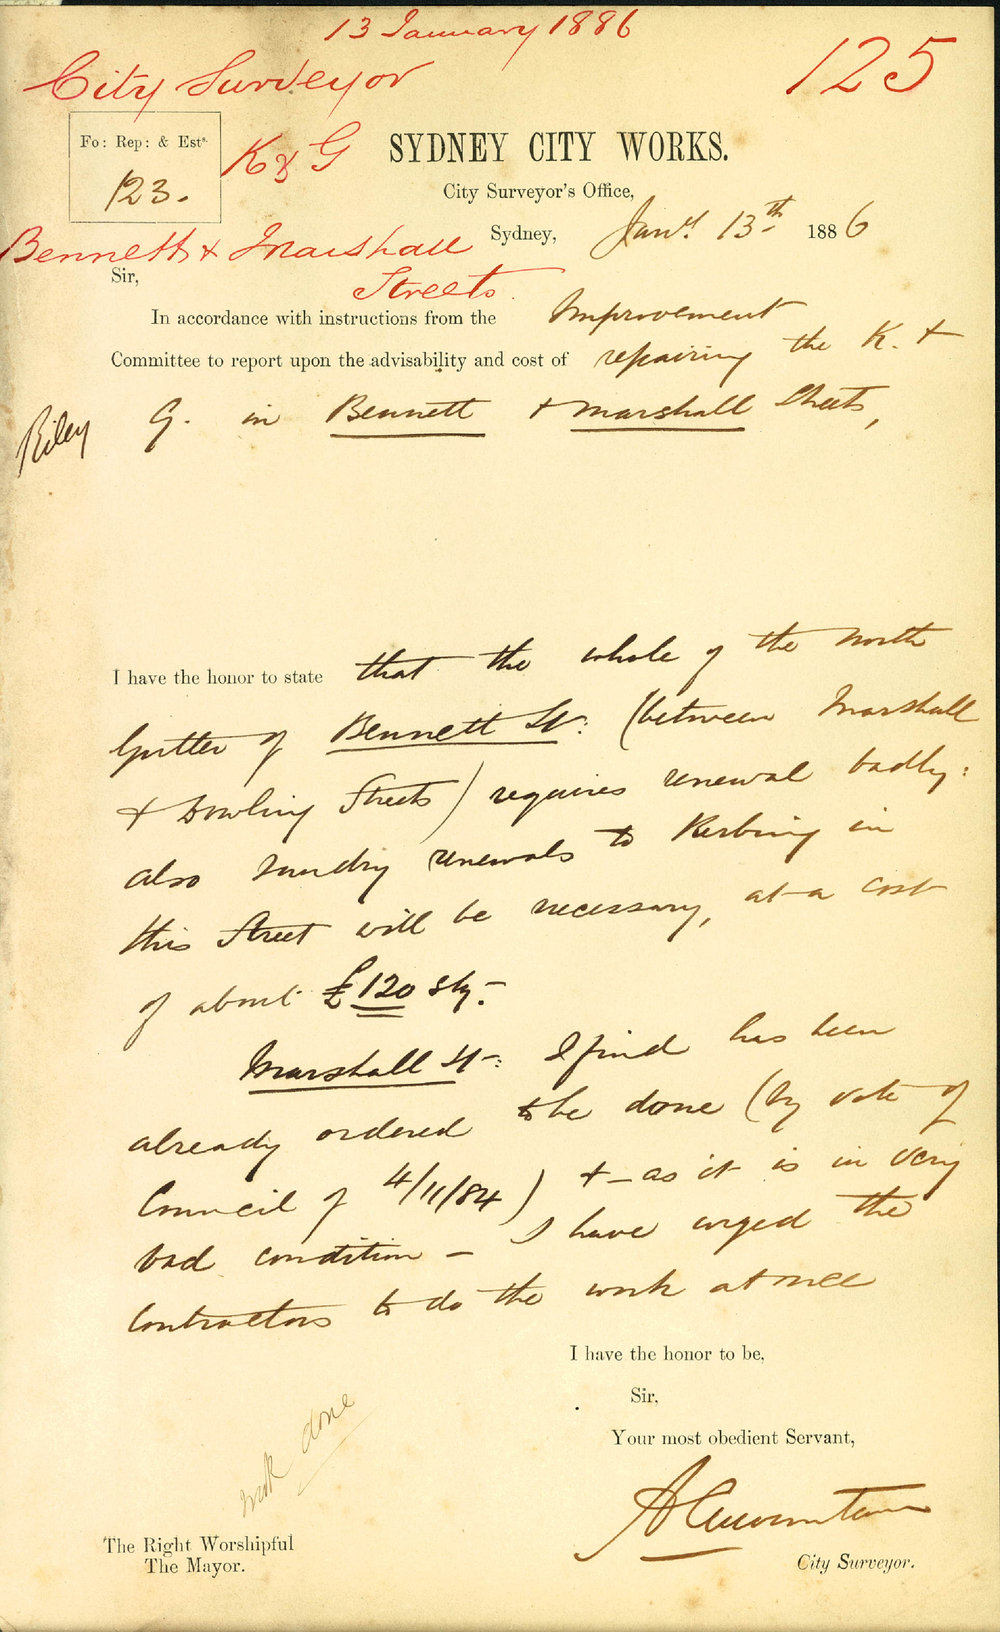 13 January 1886
City Surveyor
125
Fo: Rep: & Ests.
123.
K & G
SYDNEY CITY WORKS.
City Surveyor's Office,
Bennett & Marshall
Streets.
Sydney, Jany. 13th 1886
Sir,
In accordance with instructions from the Improvement
Committee to report upon the advisability and cost of repairing the K. &
Riley
G. in Bennett & Marshall Streets,
I have the honor to state that the whole of the north
Gutter of Bennett St: (between Marshall
& Dowling Streets) requires renewal badly:
also sundry renewals to Kerbing in
this Street will be necessary, at a cost
of about £120 stg.-
Marshall St-: I find has been
already ordered to be done (by vote of
Council of 4/11/84) & - as it is in very
bad condition - I have urged the
Contractors to do the work at once
I have the honor to be,
Sir,
Your most obedient Servant,
City Surveyor.
done
The Right Worshipful
The Mayor.